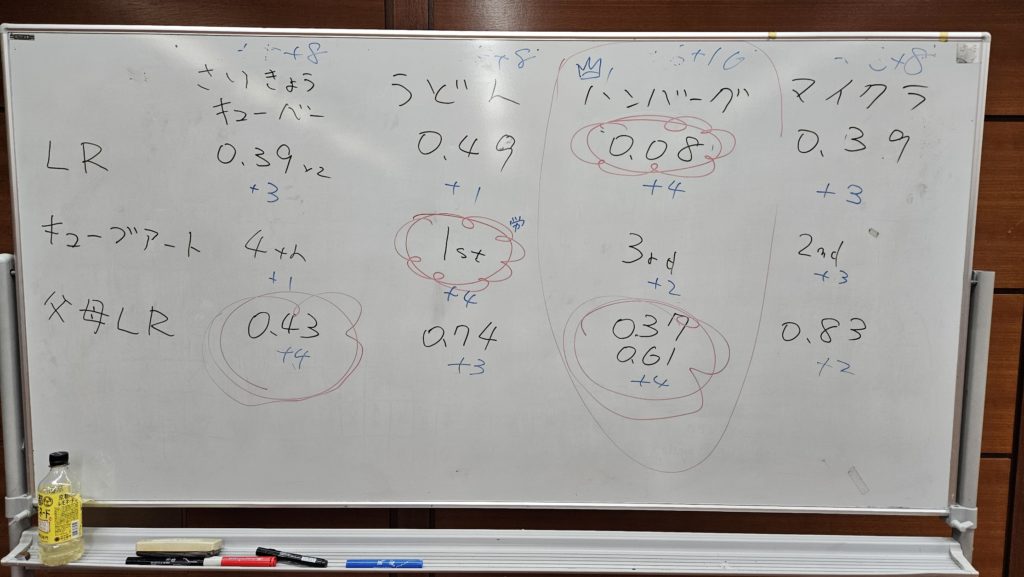 +8 +8 5+10 +8
さいきょう うどん ハンバーグ マイクラ
キューバー
LR 0.39 x2 0.49 0.08 0.39
+3 +1 +4 +3
キューブアート 4th 1st 3rd 2nd
+1 +4 +2 +3
父母LR 0.43 0.74 0.37 0.83
0.61
+4 +3 +4 +2